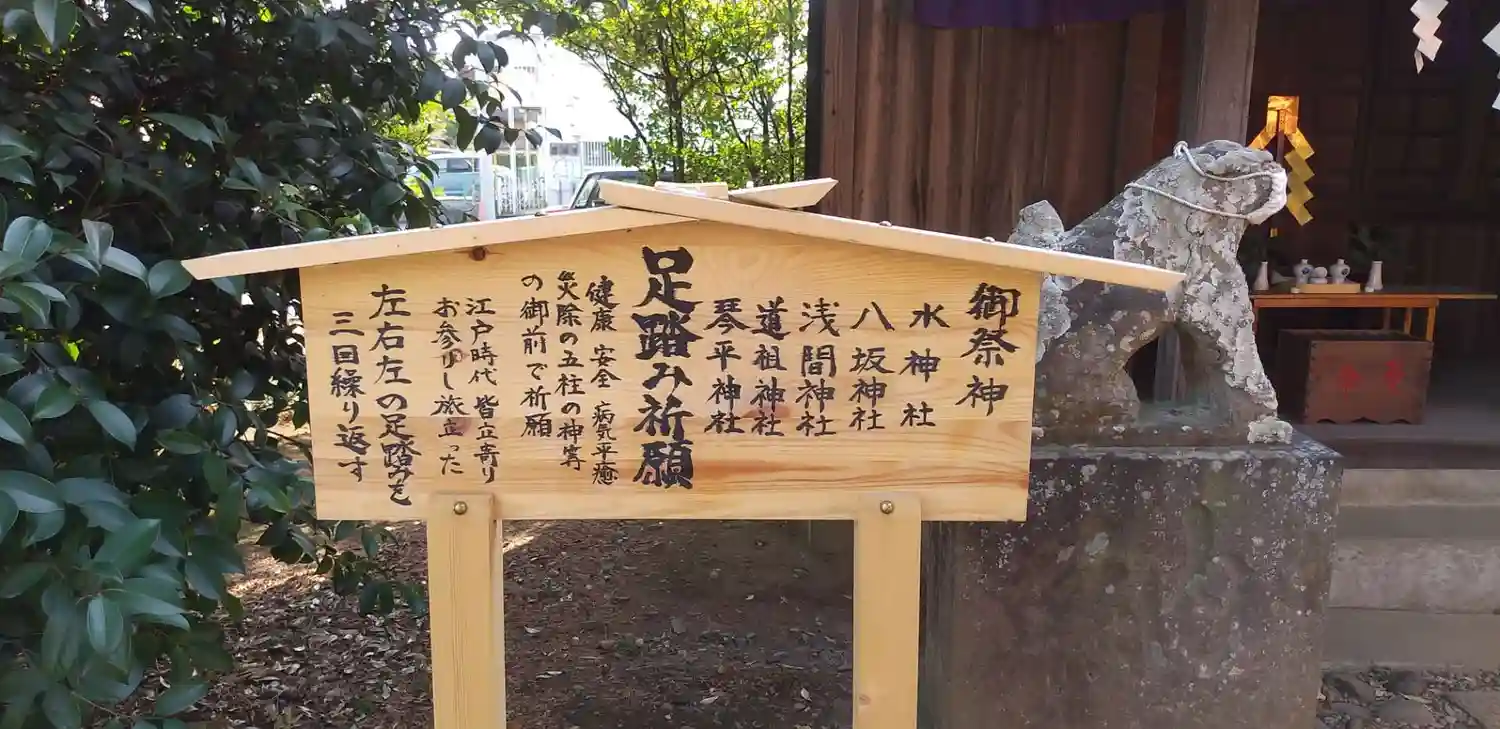 御祭神
水神社
八坂神社
浅間神社
道祖神社
琴平神社
足踏み祈願
健康 安全 病気平癒
災除の五柱の神等
の御前で祈願
江戸時代 皆立寄り
お参りし旅立った
左右左の足踏みを
三回繰り返す